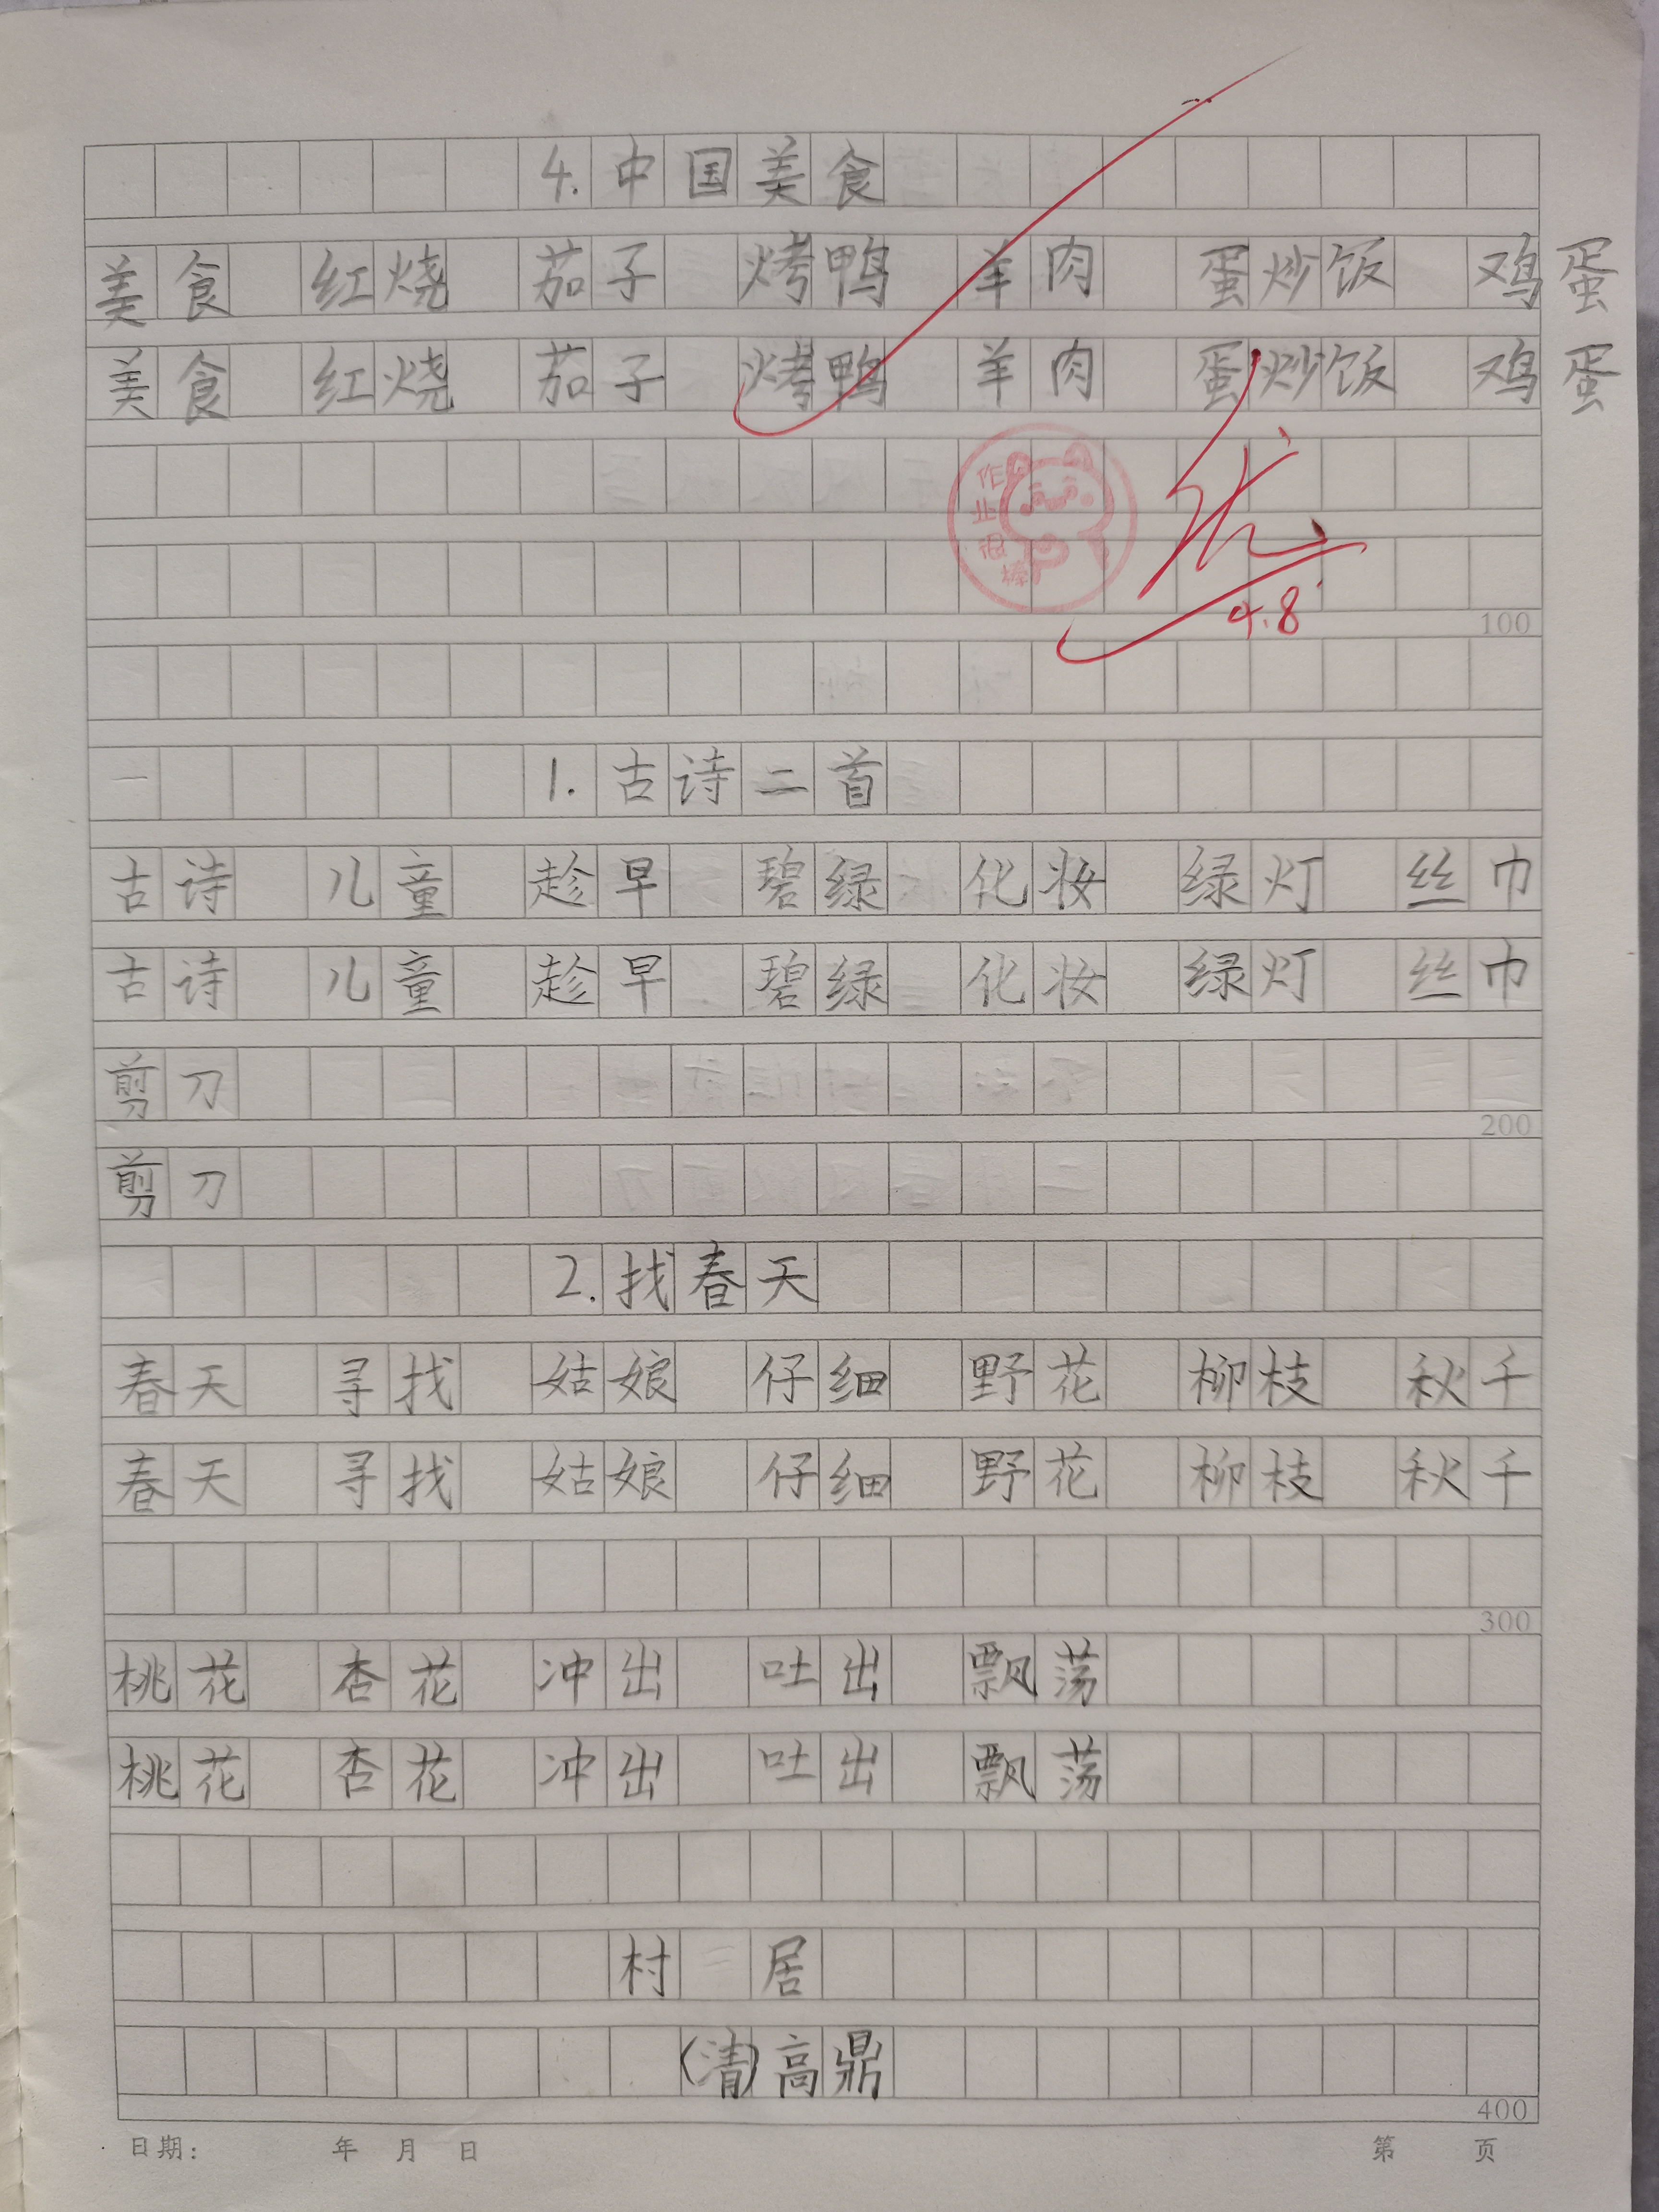 4.中国美食
美食 红烧 茄子 烤鸭 羊肉 蛋炒饭 鸡蛋
美食 红烧 茄子 烤鸭 羊肉 蛋炒饭 鸡蛋
作业很棒
优
4.8
100
1.古诗二首
古诗 儿童 趁早 碧绿 化妆 绿灯 丝巾
古诗 儿童 趁早 碧绿 化妆 绿灯 丝巾
剪刀
200
剪刀
2.找春天
春天 寻找 姑娘 仔细 野花 柳枝 秋千
春天 寻找 姑娘 仔细 野花 柳枝 秋千
300
桃花 杏花 冲出 吐出 飘荡
桃花 杏花 冲出 吐出 飘荡
村 居
(清)高鼎
400
日期: 年 月 日 第 页